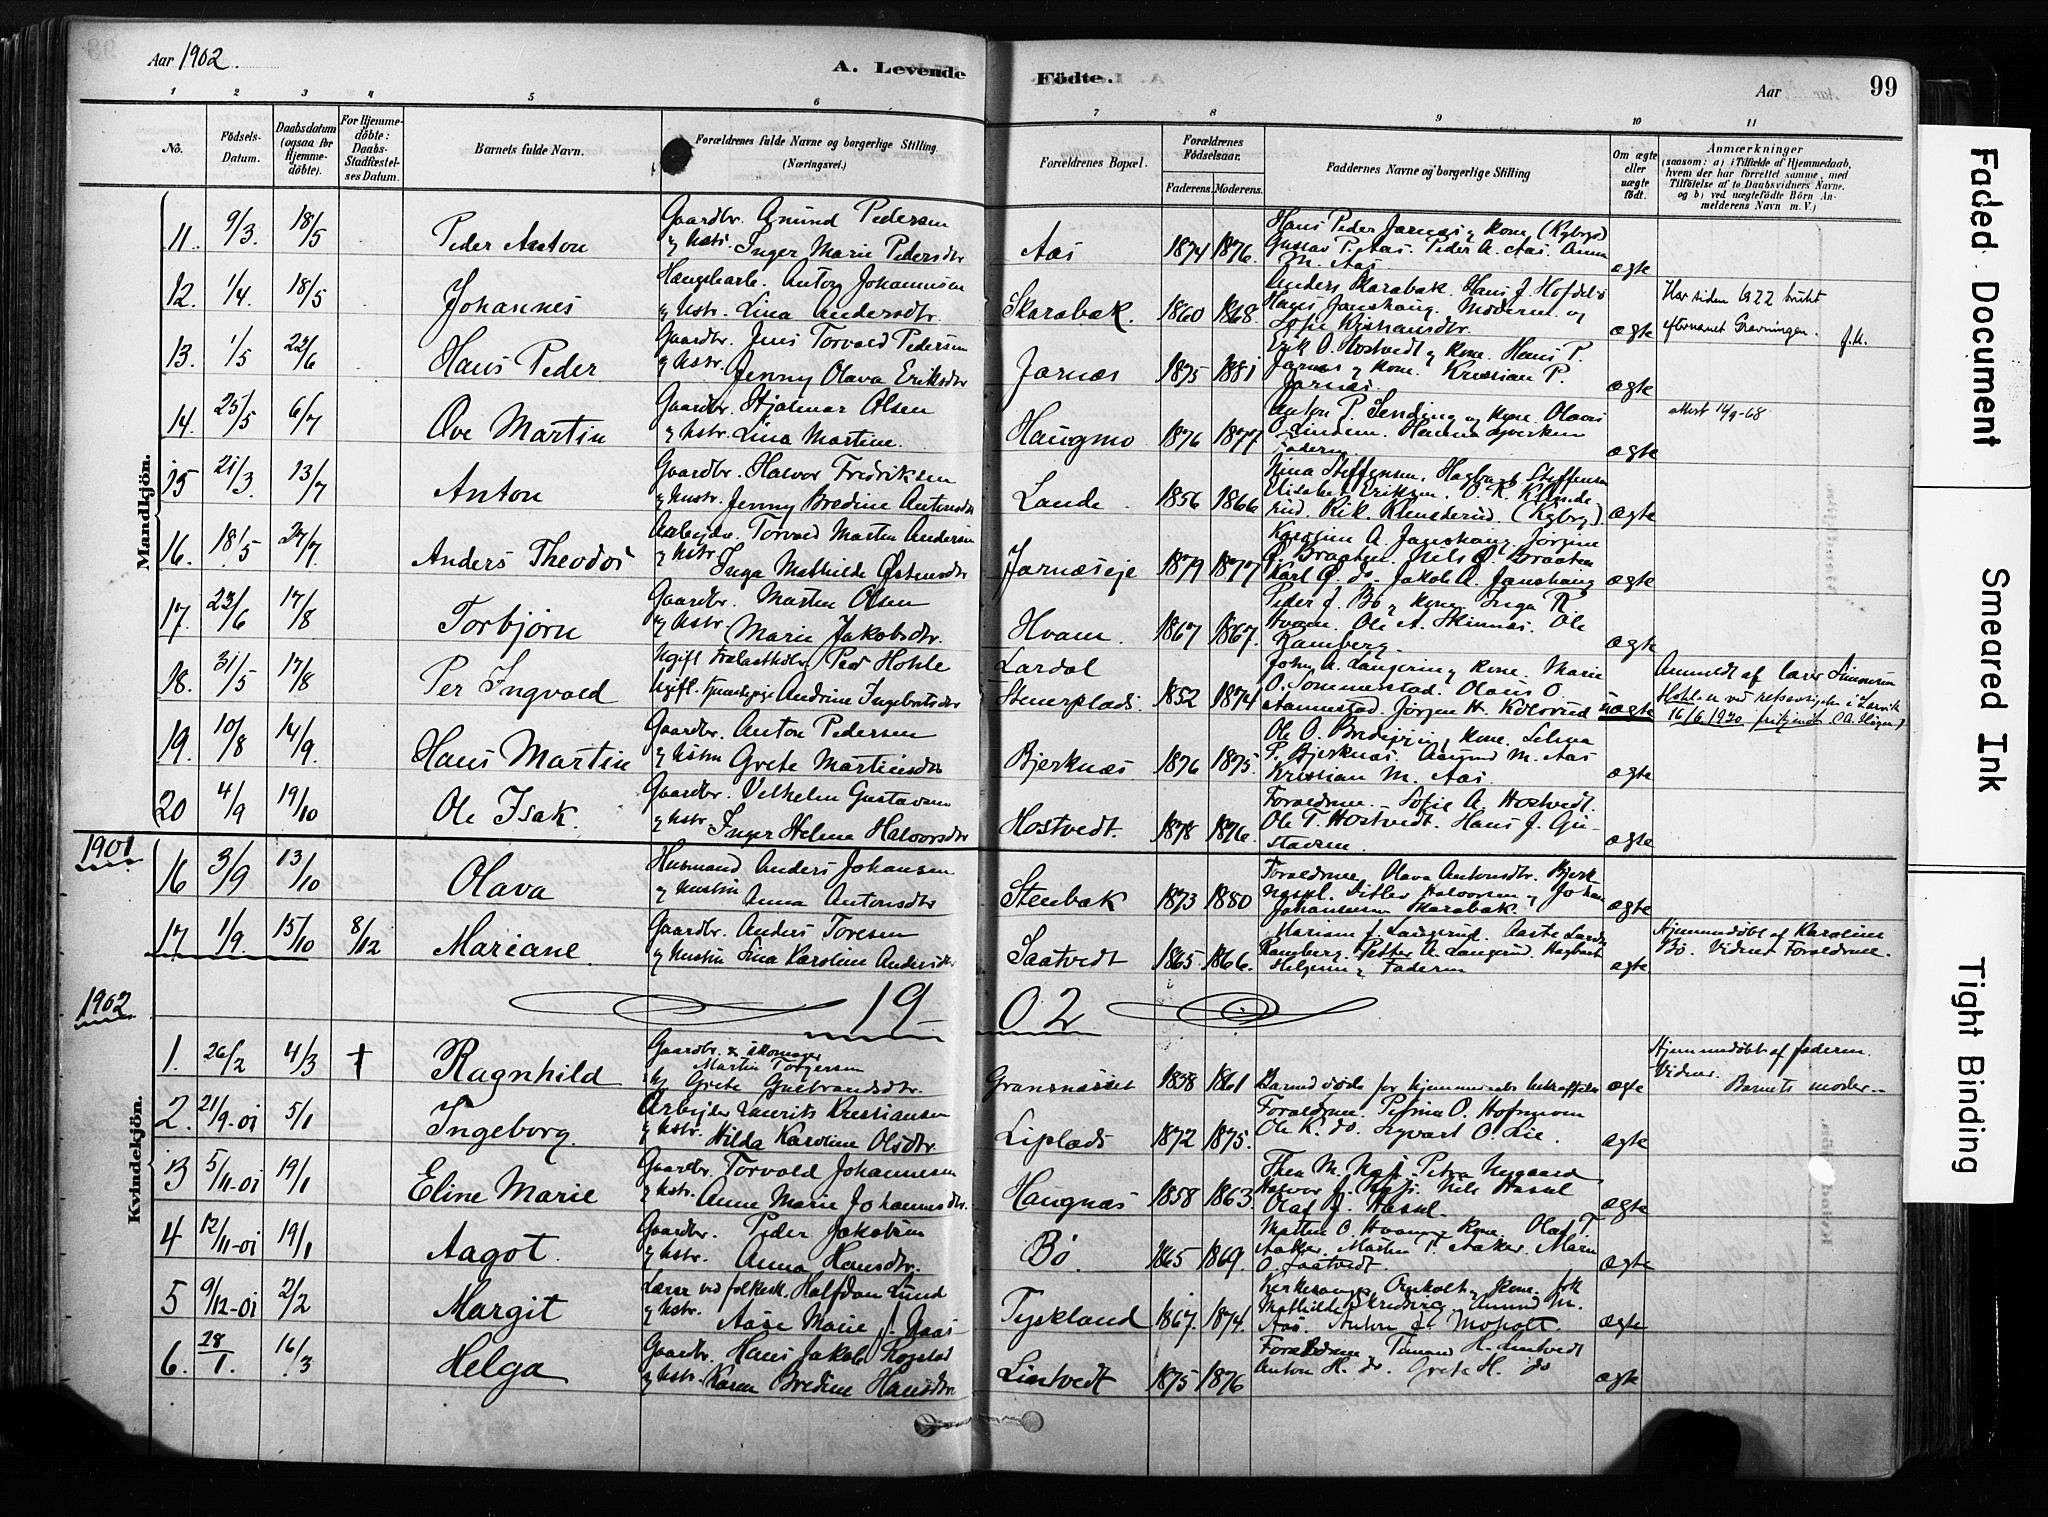 Aar 1902.
A. Levende Födte.
Aar
99
1 2 3 4 5 6 7 8 9 10 11
No.
Födsels-Datum.
Daabsdatum (ogsaa for Hjemme-döbte).
For Hjemme-döbte: Daabs-Stadfæstel-ses Datum.
Barnets fulde Navn.
Forældrenes fulde Navne og borgerlige Stilling (Næringsvei.)
Forældrenes Bopæl.
Forældrenes Födselsaar.
Faderens. Moderens.
Faddernes Navne og borgerlige Stilling
Om ægte eller uægte födt.
Anmærkninger
(saasom: a) i Tilfælde af Hjemmedaab, hvem der har forrettet samme, med Tilföielse af to Daabsvidners Navne. og b) ved uægtefödte Börn An-melderens Navn m. V.)
Mandkjön.
11. 9/3. 18/5 Peder Anton Gaardbr. Amund Pedersen
Inger Marie Pedersdtr Aas 1874 1876. Hans Peder Jarnæs og kone
Gustav P. Aas. Peder A. Aas. Anna M. Aas ægte
12. 1/4. 18/5 Johannes Anton Johannesen
og hstr. Lina Andersdtr. Skarabak. 1860 1868. Anders Skarabak. Hans J.
ægte Har siden 1922 brukt
efternavnet Gravningen.
13. 1/5 22/6 Hans Peder Gaardbr. Jens Torvald Pedersen
og hstr. Jenny Olava Eriksdtr Jarnæs 1875 1881 Erik O. Hostvedt og kone. Hans P.
Jarnæs og kone. Kristian P. Jarnæs. ægte
14. 25/5 6/7 Ove Martin Gaardbr. Hjalmar Olsen
og hstr. Lina Martine. Haugmo 1876 1877 Anton P. og kone. Olava
O. Lindem. ægte attest 16/9-68
15 21/3. 13/7 Anton Gaardbr. Halvor Fredriksen
og hustr. Jenny Bredine Antonsdtr Lande 1856 1866 Nina Steffensen. Hagbart Steffensen
Elisabet Eriksen. ægte
16. 18/5 27/7. Anders Theodor Arbeider Torvald Martin Andersen
og hstr. Inga Mathilde Østensdtr Jarnæseje 1879 1877 A. Janshaug. Jørgine
Ø. Braaten. Nils Ø. Braaten
Karl Ø. do. Jakob A. Janshaug ægte
17. 23/6 17/8 Torbjørn Gaardbr. Martin Olsen
og hstr. Marie Jakobsdtr. Hvam. 1867 1867. Peder J. Bö og kone. Inga R.
Hvam. Ole A. Ole
Ramberg. ægte
18. 31/5 17/8 Per Ingvald Ugift Per Hohle
Ugift. tjenestepige Andrine Ingebretsdtr Lardal
1852 1874 John A. Langerin og kone. Marie
O. Sommerstad. Olaus O.
Jørgen H. uægte Anmeldt af Simonsen
Hohle er ved i Larvik
16/6 1920 frifjendt
19. 10/8 14/9. Hans Martin Gaardbr. Anton Pedersen
og hstru Grete Martinsdtr Bjerknæs 1876 1875. Ole O. og kone. Selma
P. Bjerknæs. Aamund M. Aas
Kristian M. Aas ægte
20 4/9 19/10 Ole Isak. Gaardbr. Vilhelm Gustavsen
og hstr. Inger Helene Halvorsdtr Hostvedt. 1878 1876. Forældrene. Sofie A. Hostvedt.
Ole T. Hostvedt. Hans J. Gu-
stavsen. ægte
1901
16 3/9 13/10 Olava Husmand Anders Johansen
og hustru Anna Antonsdtr Stenbak 1873 1880 Forældrene, Olava Antonsdtr.
Ditlev Halvorsen og Johan
Johannesen Skarabak. ægte
17 1/9. 15/10 8/12 Mariane Gaardbr. Anders Toresen
og hustru Lina Karoline Andersdtr Saatvedt 1865 1866. Mariane J. Langerud.
Ramberg. Petter A. Langerud. Hagbart
Helgesen og Faderen ægte Hjemmedøbt af Karoline
Bö. Vidner Forældrene.
1902 1902
Kvindekjön.
1. 26/2 4/3 † Ragnhild Gaardbr. & skomager
Martin Torgersen
og Grete Gulbrandsdtr. Gransnæsset 1858 1861 Barnet døde før hjemmedaabs bekræftelse ægte Hjemmedøbt af faderen.
Vidner. Barnets moder —
2. 21/9-01 5/1 Ingeborg. Arbejder Laurits Kristiansen
og hstr. Hilda Karoline Olsdtr. Liplads 1872 1875. Forældrene.
Ole K. do. Syvert O. Lie. ægte
3 5/11-01 19/1 Eline Marie Gaardbr. Torvald Johannesen
og hstr. Anne Marie Johannesdtr. Haugnæs 1858 1863. Thea M. Petra Nygaard
Halvor J. Nils Hassel
Olaf J. Hassel. ægte
4 12/11-01 19/1 Aagot. Gaardbr. Peder Jakobsen
og hstr. Anna Hansdtr. Bö. 1865 1869. Martin O. Hvam og kone. Olaf T.
Aaker. Martin T. Aaker. Maren
O. Saatvedt. ægte
5 9/12-01 2/2 Margit Lærer ved folkesk. Halfdan Lund
og hstr. Aase Marie J. Tyskland 1867. 1874. Kirkesanger og kone.
Mathilde Amund M.
Aas. Anton J. Moholt. ægte
6. 28/1. 16/3 Helga Gaardbr. Hans Jakob
og hstr. Karen Bredine Hansdtr Lintvedt 1875 1876 Forældrene, H. Lintvedt
Anton H. do Grete H. do ægte
Faded Document
Smeared Ink
Tight Binding